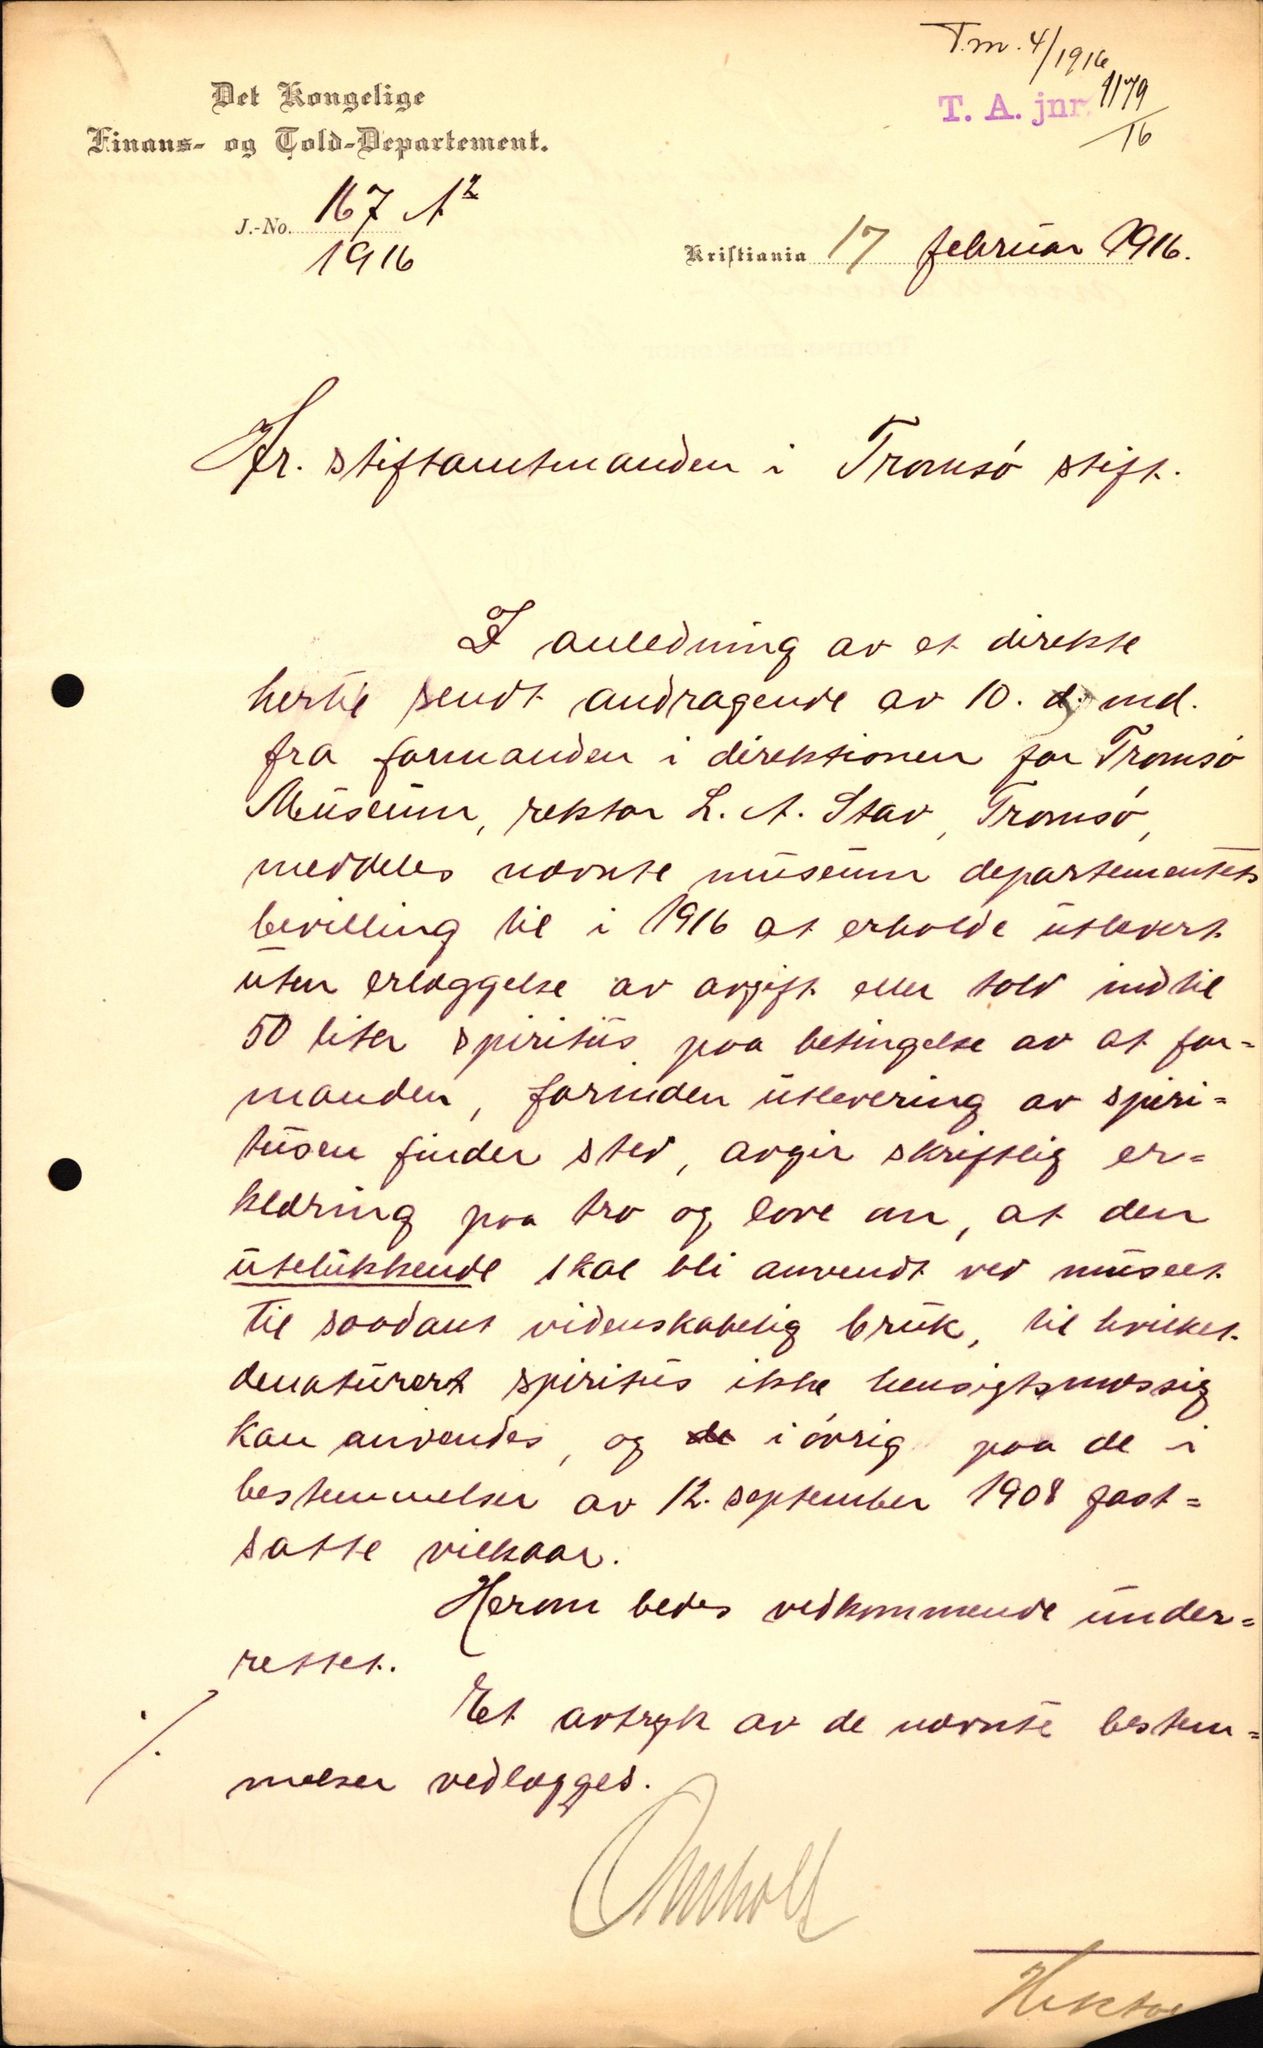 T.m. 4/1916
T. A. jnr. 1179/16
Det Kongelige
Finans- og Told-Departement.
J.-No. 167 A2
1916
Kristiania 17 februar 1916.
Hr. stiftamtmanden i Tromsø stift.
I anledning av et direkte
hertil sendt andragende av 10. d. md.
fra formanden i direktionen for Tromsø
Museum, rektor L. A. Stav, Tromsø,
meddeles nævnte museum departementets
bevilling til i 1916 at erholde utlevert
uten erlæggelse av avgift eller told indtil
50 liter spiritus paa betingelse av at for-
manden, forinden utlevering av spiri-
tusen finder sted, avgir skriftlig er-
klæring paa tro og love om, at den
utelukkende skal bli anvendt ved museet
til saadant videnskabelig bruk, til hvilket
denaturert spiritus ikke hensigtsmæssig
kan anvendes, og de i øvrig paa de i
bestemmelser av 12. september 1908 fast-
satte vilkaar.
Herom bedes vedkommende under-
rettet.
Et avtryk av de nævnte bestem-
melser vedlægges.
./.
Omholt